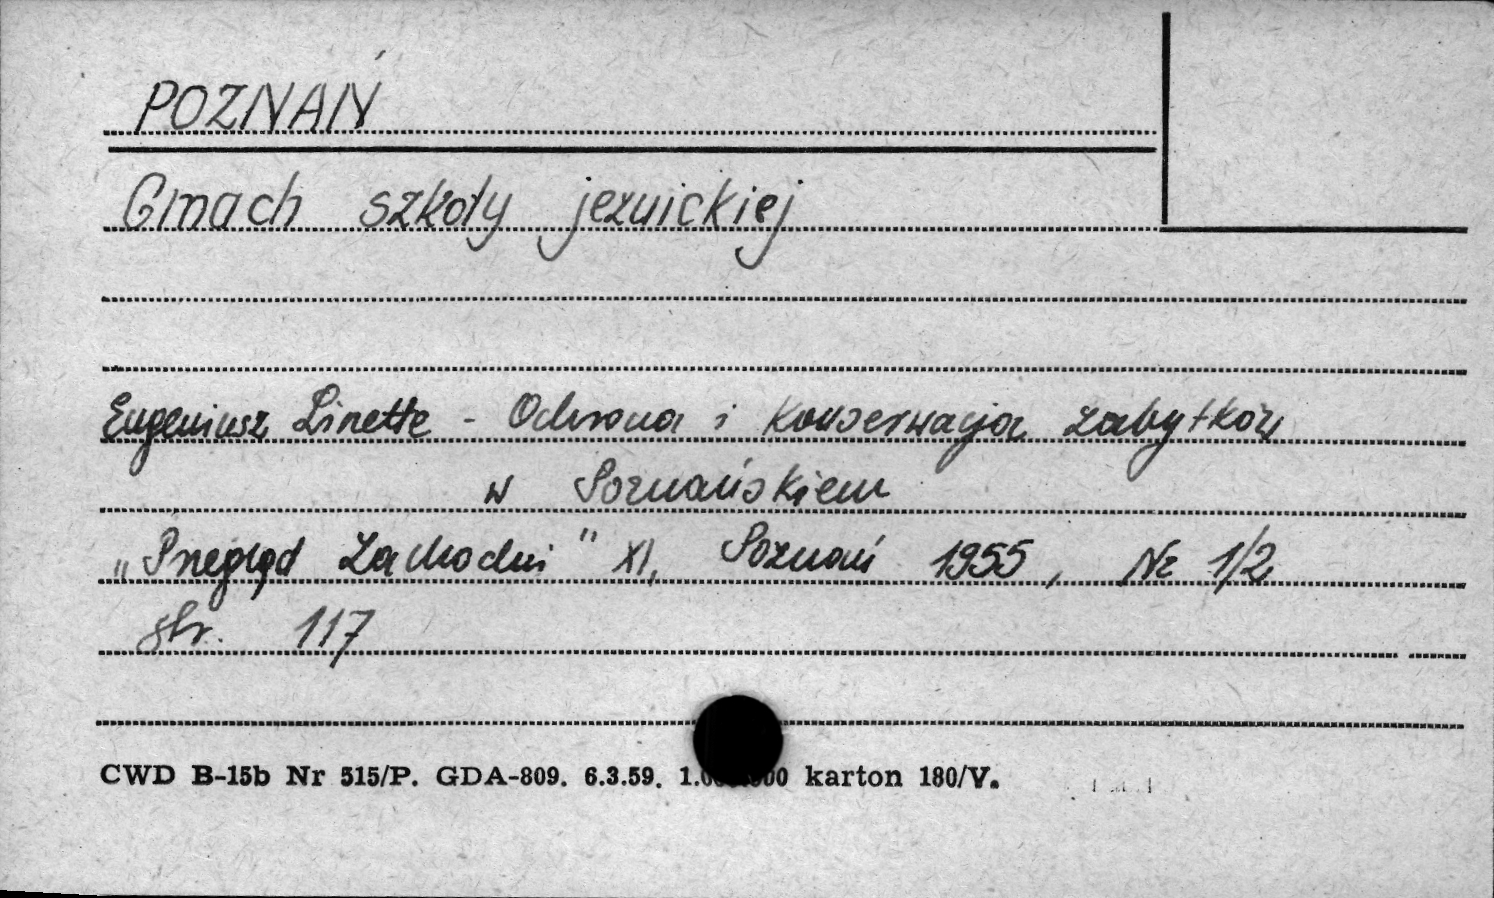 POZNAŃ
Gmach szkoły jezuickiej
Eugeniusz Linette - Ochrona i konserwacja zabytków
w Poznańskiem
„Przegląd Zachodni" XI, Poznań 1955, Nr 1/2
str. 117
CWD B-15b Nr 515/P. GDA-809. 6.3.59. karton 180/V.